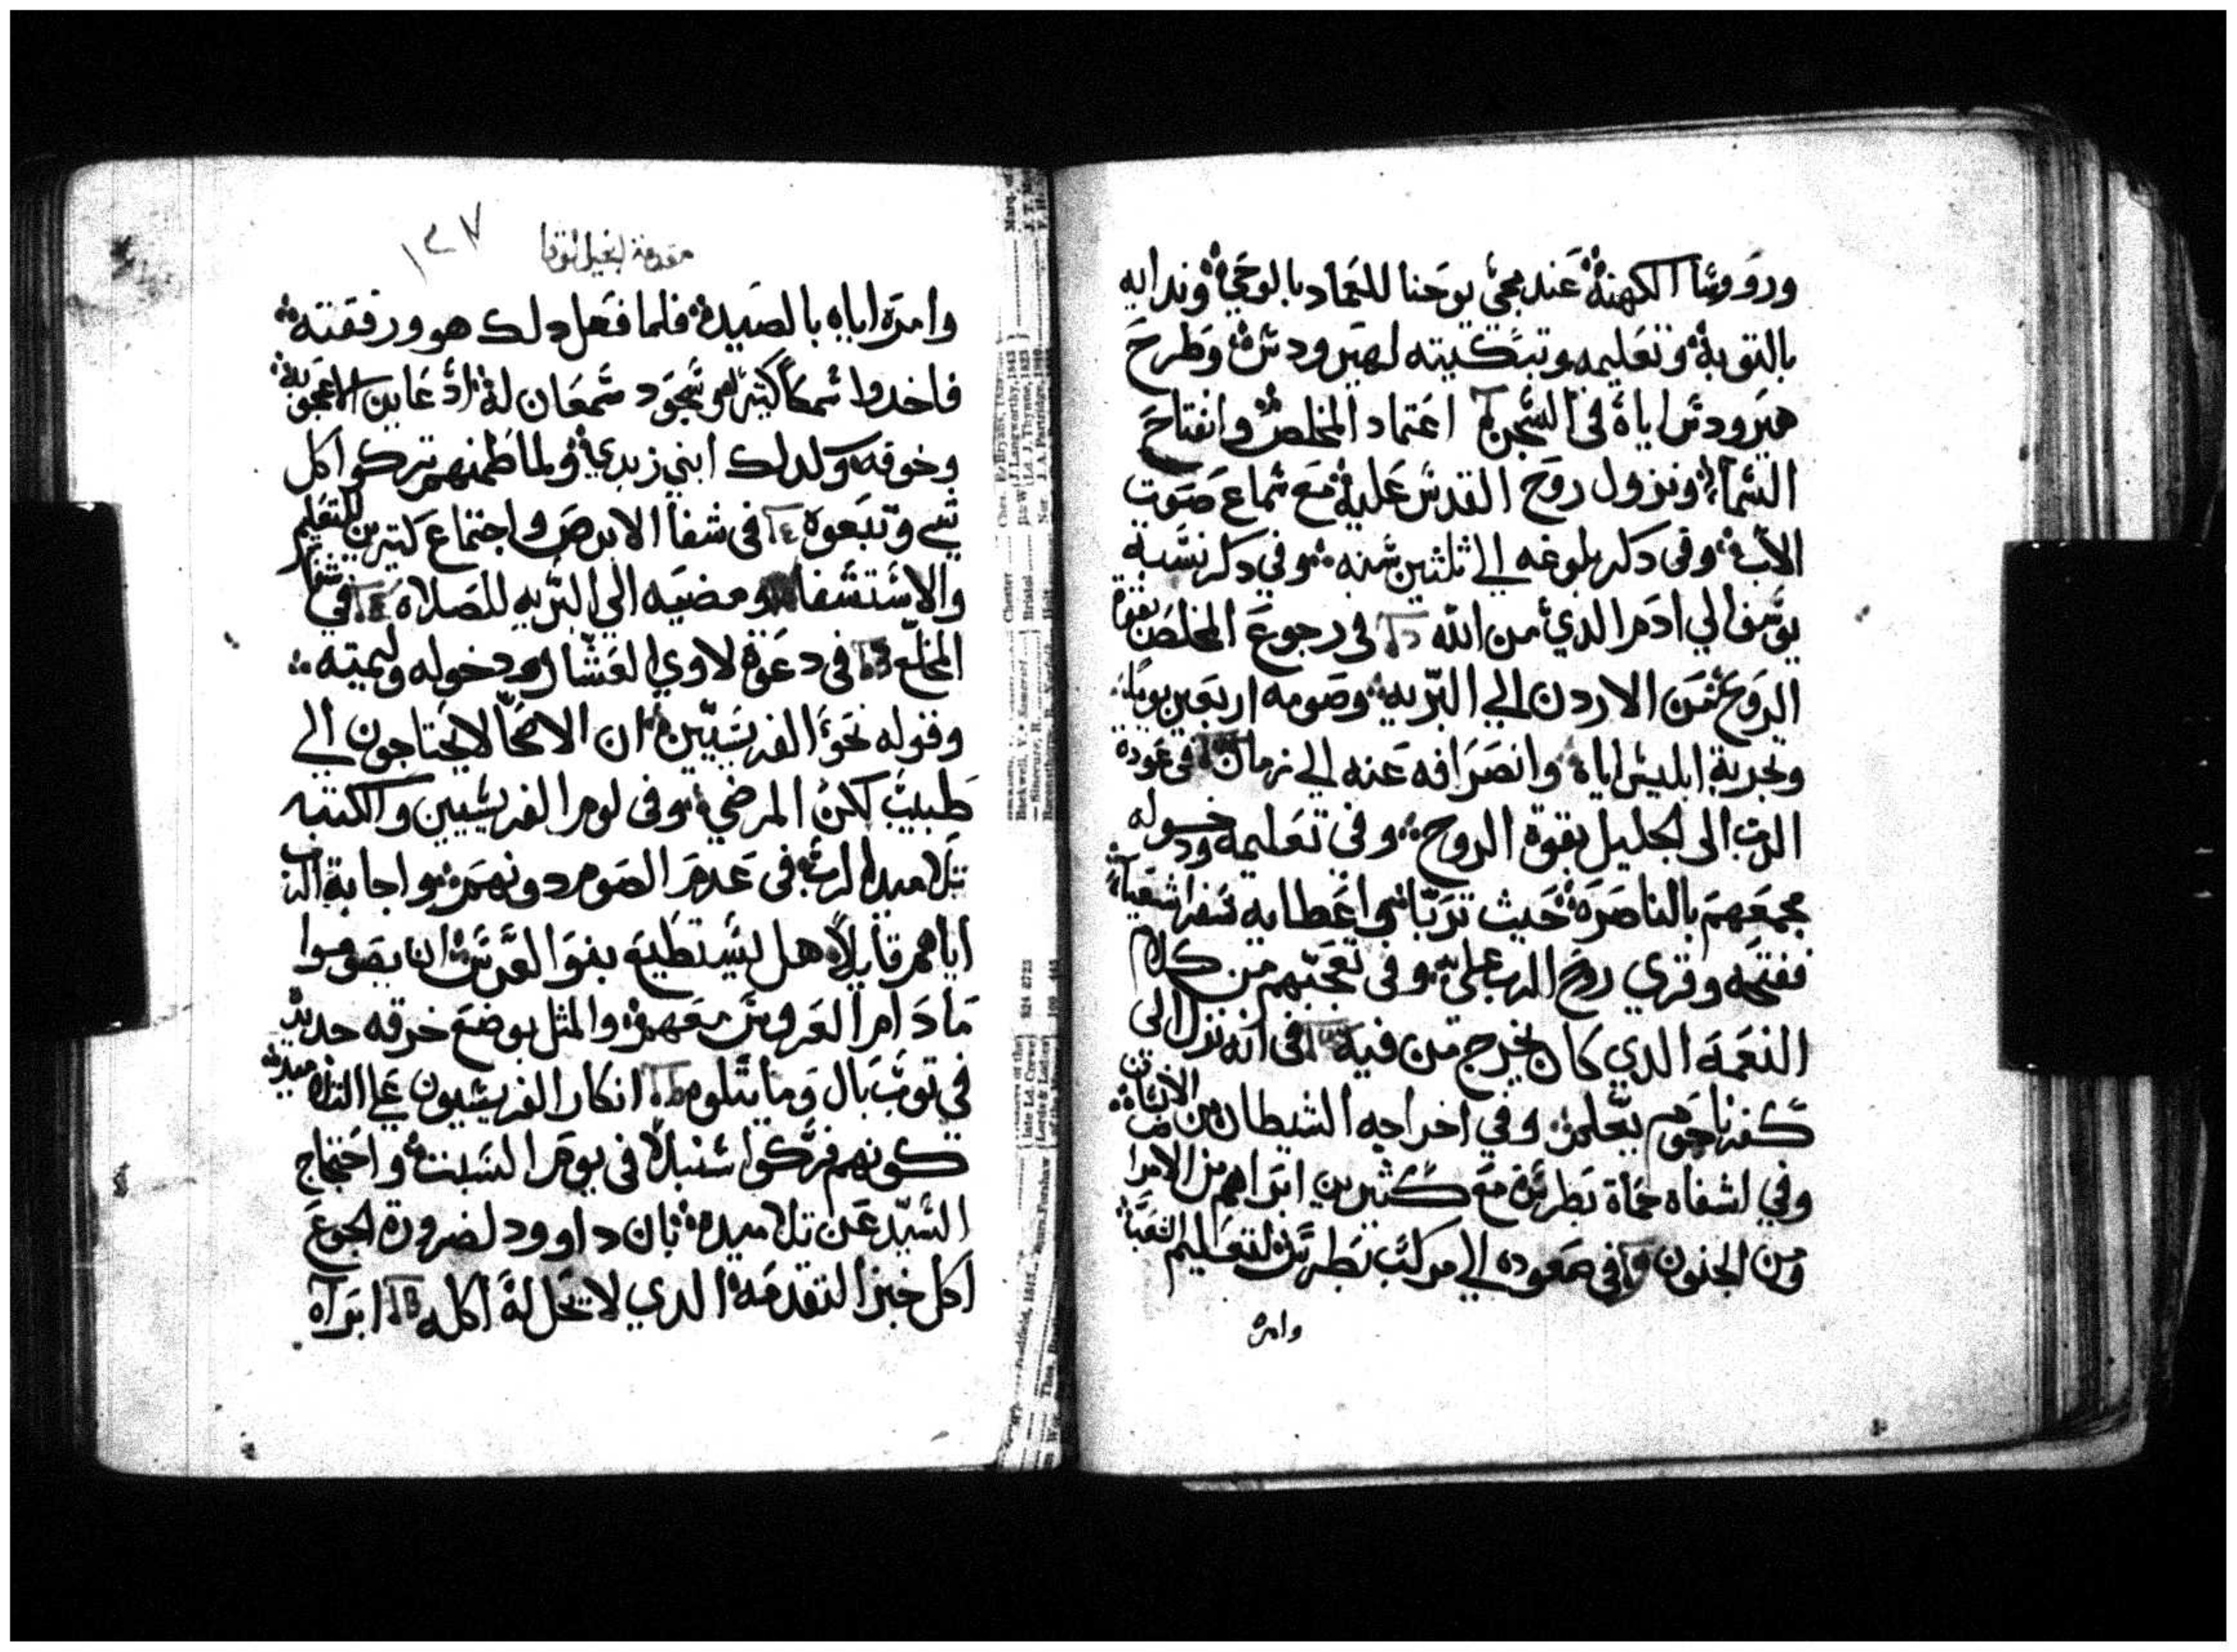 ورووسا الكهنة عند مجي يوحنا للعماد بالوحي وندايه
بالتوبة وتعليمه وتبكيته لهيرودس وطرح
هيرودس اياه في السجن اعتماد المخلص وانفتاح
السما ونزول روح القدس عليه مع سماع صوت
الاب وفي دكر بلوغه الي ثلثين سنه وفي دكر نسبة
يوسف الي ادم الدي من الله في رجوع المخلص بقوة
الروح من الاردن الي البريه وصومه اربعين يوما
وتجربة ابليس اياه وانصرافه عنه الي زمان في عودة
الرب الى الجليل بقوة الروح وفي تعليمه ودخوله
مجمعهم بالناصرة حيث تربا واعطايه سفر اشعيا
ففتحه وقري روح الرب علي وفي تعجبهم من كلام
النعمة الدي كان يخرج من فيه في انه نزل الى
كفرناحوم يعلم وفي اخراجه الشيطان من الانسان
وفي اشفاه حماة بطرس مع كثيرين ابراهم من الامراض
ومن الجنون في صعوده الي مركب بطرس لتعليم الشعب
وامره
مقدمة انجيل لوقا
١٣٧
وامره اياه بالصيد فلما فعل دلك هو ورفقته
فاخدوا سمكا كثير وسجود سمعان له اد عاين الاعجوبة
وخوفه وكدلك ابني زبدي ولما طمنهم تركوا كل
شي وتبعوه في شفا الابرص واجتماع كتيرين للتعليم
والاستشفا ومضيه الي البريه للصلاة في شفا
المخلع في دعوة لاوي العشار ودخوله وليمته
وقوله نحو الفريسيين ان الاصحا لا يحتاجون الي
طبيب لكن المرضي وفي لوم الفريسيين والكتبه
تلاميد الرب في عدم الصوم دونهم واجابة الرب
اياهم قايلا هل يستطيع بنو العرس ان يصوموا
ما دام العروس معهم والمثل بوضع خرقه جديد
في توب بال وما يتلوه انكار الفريسيون علي التلاميد
كونهم فركوا سنبلا في يوم السبت واحتجاج
السيد عن تلاميده بان داوود لضرورة الجوع
اكل خبز التقدمة الدي لا يحل له اكله ابراه